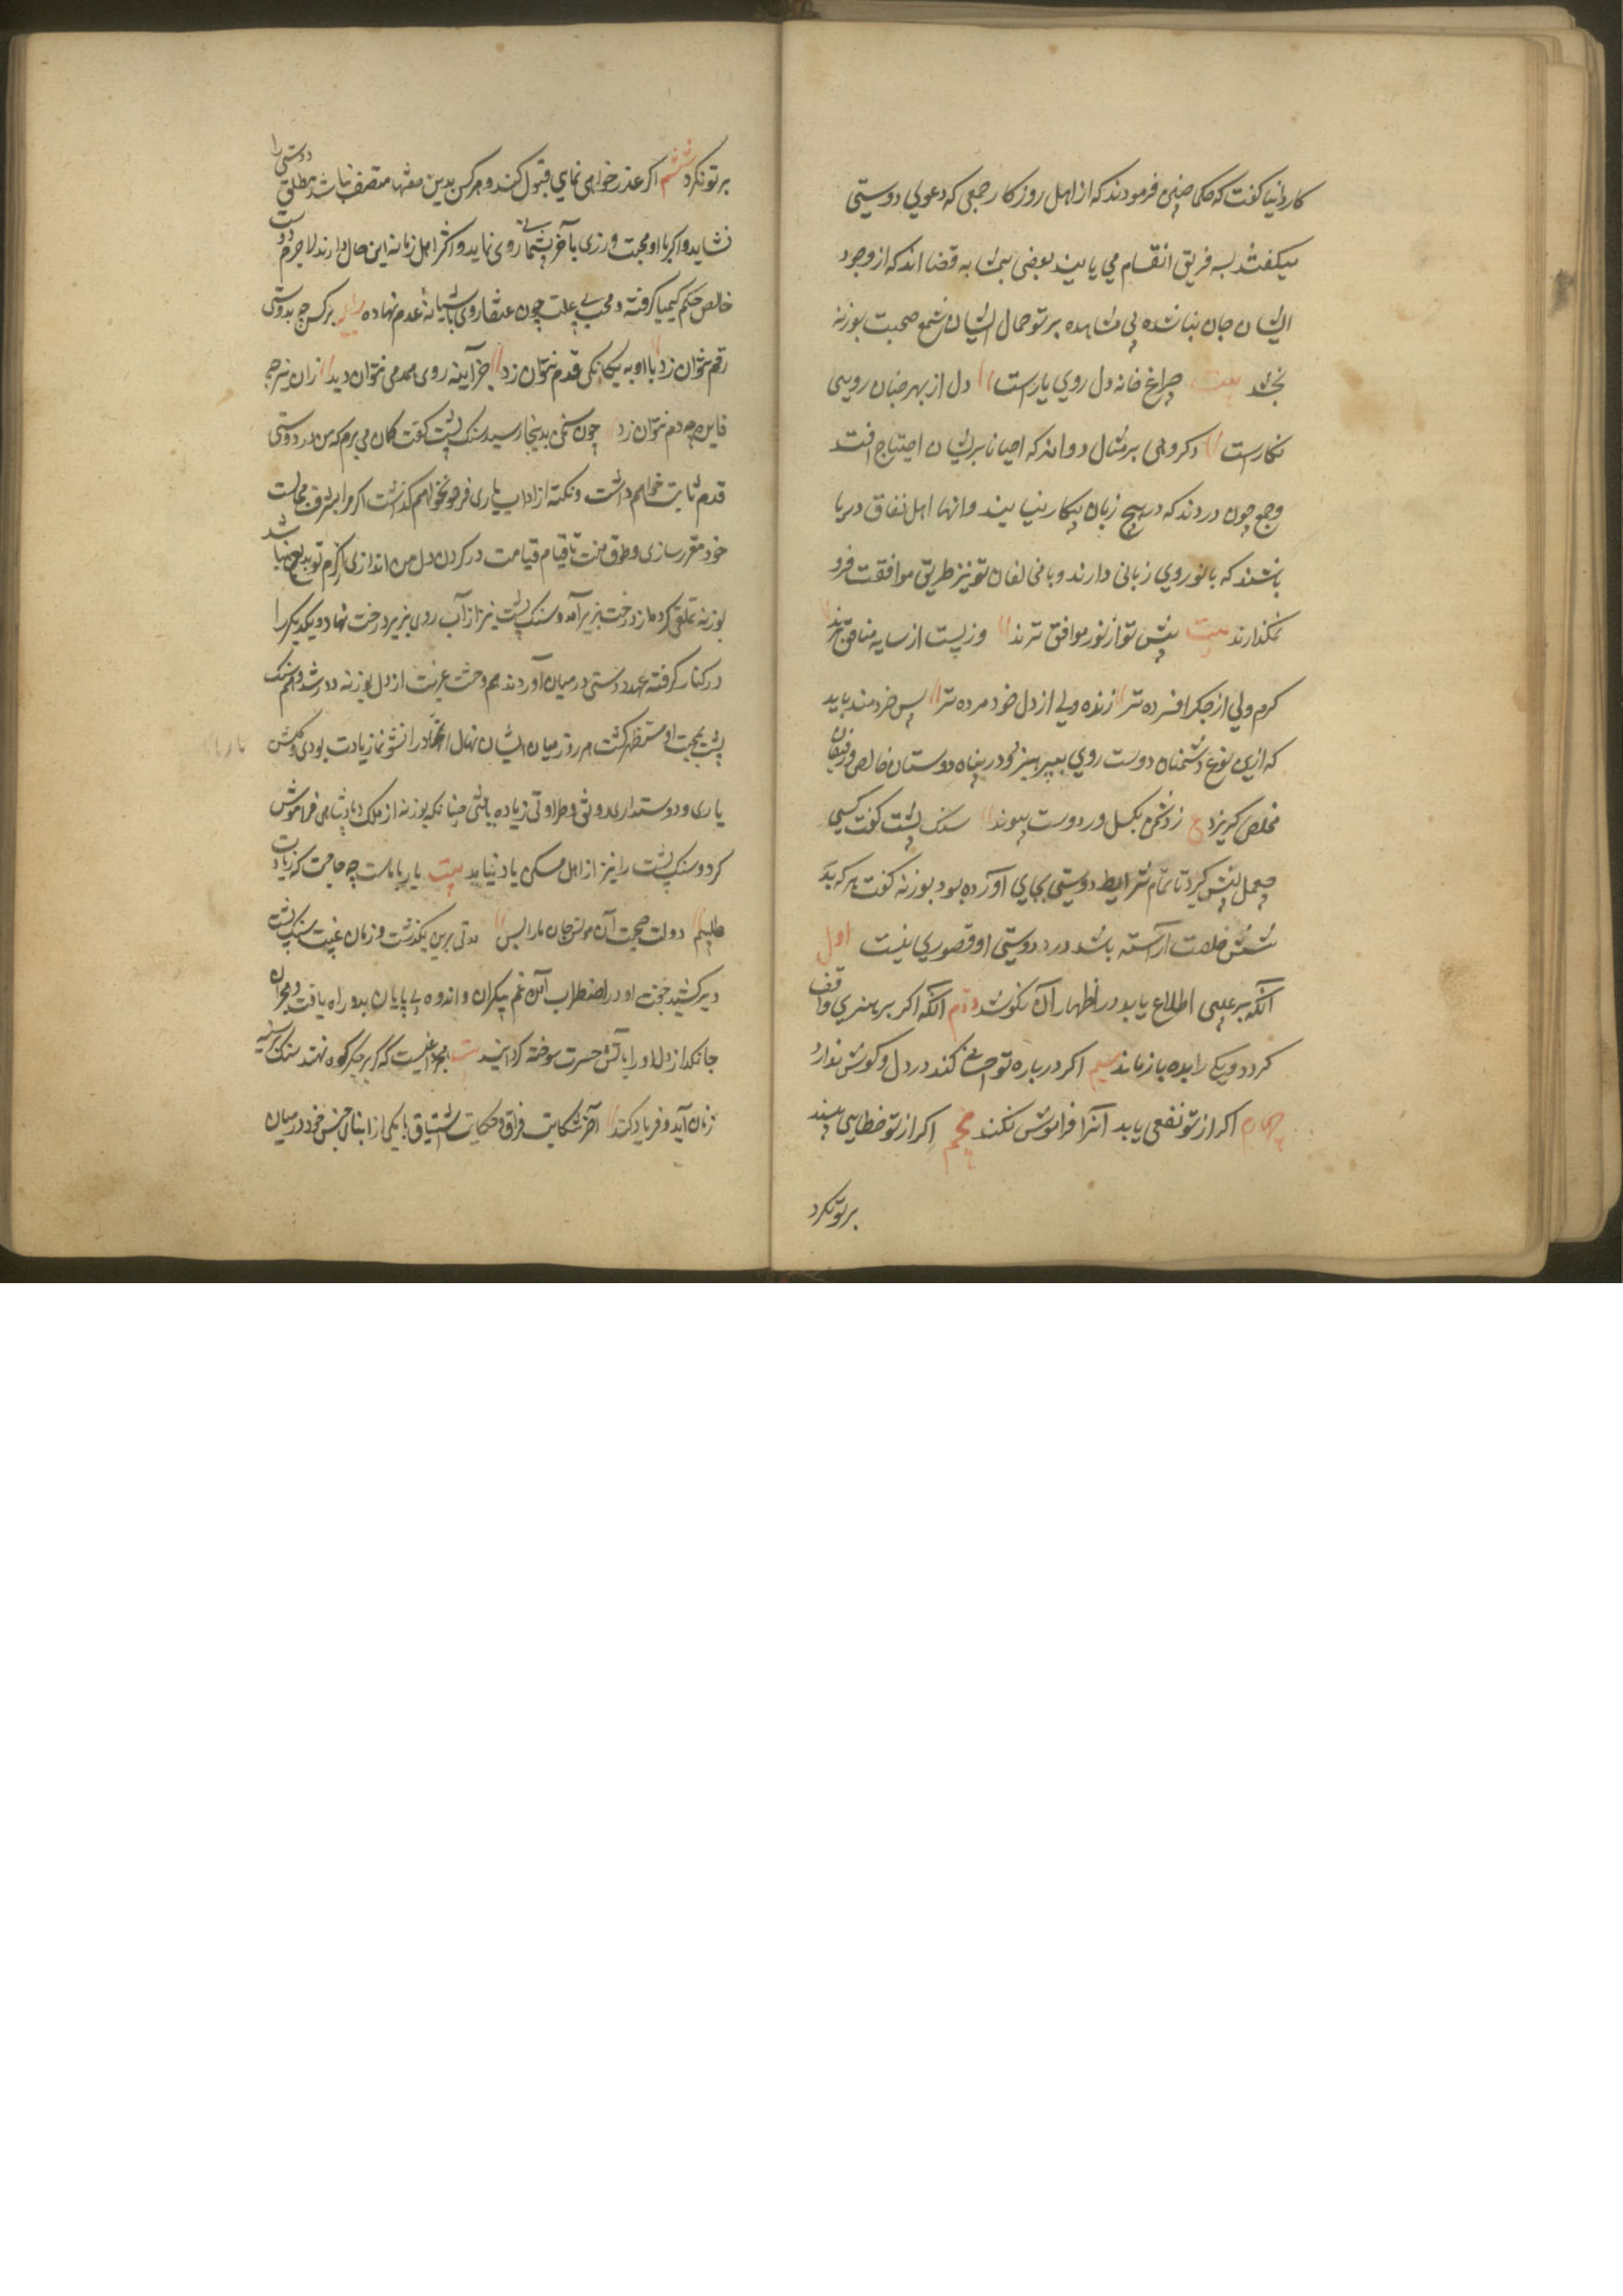 کاردانیا کفت که حکما چنین فرمودند که از اهل روزکار جمعی که دعوی دوستی
میکنند بسه فریق انقسام می یابند بعضی بمثابه غذا اند که از وجود
ایشان جان نباشده بی مشاهده پرتو جمال ایشان شمع صحبت نور نه
بخشد بیت چراغ خانه دل روی یارست دل از بهر چنان رویی
نکارست و کروهی بر مثال دوا اند که احیانا بریشان احتیاج افتد
و جمع چون دردند که در هیچ زبان بکار نیایند و انها اهل نفاق و ریا
باشند که با تو روی زبانی دارند و با مخالفان تو نیز طریق موافقت فرو
نمکذارند بیت پیش تو از نور موافق ترند وز پست از سایه منافق ترند
کرم ولی از جکر افسرده تر زنده ولی از دل خود مرده تر پس خردمند باید
که ازین نوع دشمنان دوست روی بپرهیزد و در پناه دوستان خالص و رفیقان
مخلص کریزد ع ز دشمن بکسل و در دوست پیوند سنک پشت کفت کسی
چه عمل پیش کیرد تا تمام شرایط دوستی بجای آورده بود بوزنه کفت هر که بد
شش خصلت آراسته باشد در دوستی او قصوری نیست اول
آنکه بر عیبی اطلاع یابد در اظهار آن نکوشد دوم آنکه اکر بر هنری واقف
کردد و یکی را بده بازماند سیم اکر درباره تو احسانی کند در دل و کوش ندارد
چهارم اکر از تو نفعی یابد آنرا فراموش نکند پنجم اکر از تو خطایی بیند
بر تو نکرد
بر تو نکرد ششم اکر عذر خواهی نمای قبول کند و هر کس بدین صفتها متصف نباشد مطلق دوستی را
نشاید و اکر با او محبت ورزی بآخر پشیمانی روی نماید و اکثر اهل زمانه این حال دارند لاجرم دوست
خالص حکم کیمیا کرفته و محب بی علت چون عنقا روی بآشیانه عدم نهاده بر کس چه بدوستی
رقم نتوان زد با او به یکانکی قدم نتوان زد جز آینه روی همدمی نتوان دید زان نیز چه
فایده چه دم نتوان زد چون سخن بدینجا رسید سنک پشت کفت کمان می برم که من در دوستی
قدم ثابت خواهم داشت و نکته از اداب یاری فرو نخواهم کذاشت اکر مرا بشرف مجالست
خود مقرر سازی و طوق منت تا قیام قیامت در کردن دل من اندازی از کرم تو بدیع نباشد
بوزنه تملقی کرد و از درخت بزیر آمد و سنک پشت نیز از آب روی بزیر درخت نهاد و یکدیکر را
در کنار کرفته عهد دوستی در میان آوردند هم وحشت غربت از دل بوزنه دور شد و هم سنک
پشت بمحبت او مستظهر کشت هر روز میان ایشان نهال اتحاد را نشو نما زیادت بودی و کلشن
یاری و دوستداری رونق و طراوتی زیاده یافتی چنانکه بوزنه از ملک و پادشاهی فراموش
کرد و سنک پشت را نیز از اهل مسکن یاد نیاید بیت یار با ماست چه حاجت که زیادت
طلبیم دولت صحبت آن مونس جان ما را بس مدتی برین بکذشت و زمان غیبت سنک پشت
دیر کشید جفت او در اضطراب آمده غم بیکران و اندوه بی پایان بدو راه یافت و هجران
جانکداز دل او را بآتش حسرت سوخته کردانید
زمان آید و فریاد کند آخر شکایت فراق و حکایت اشتیاق با یکی از ابنای جنس خود در میان